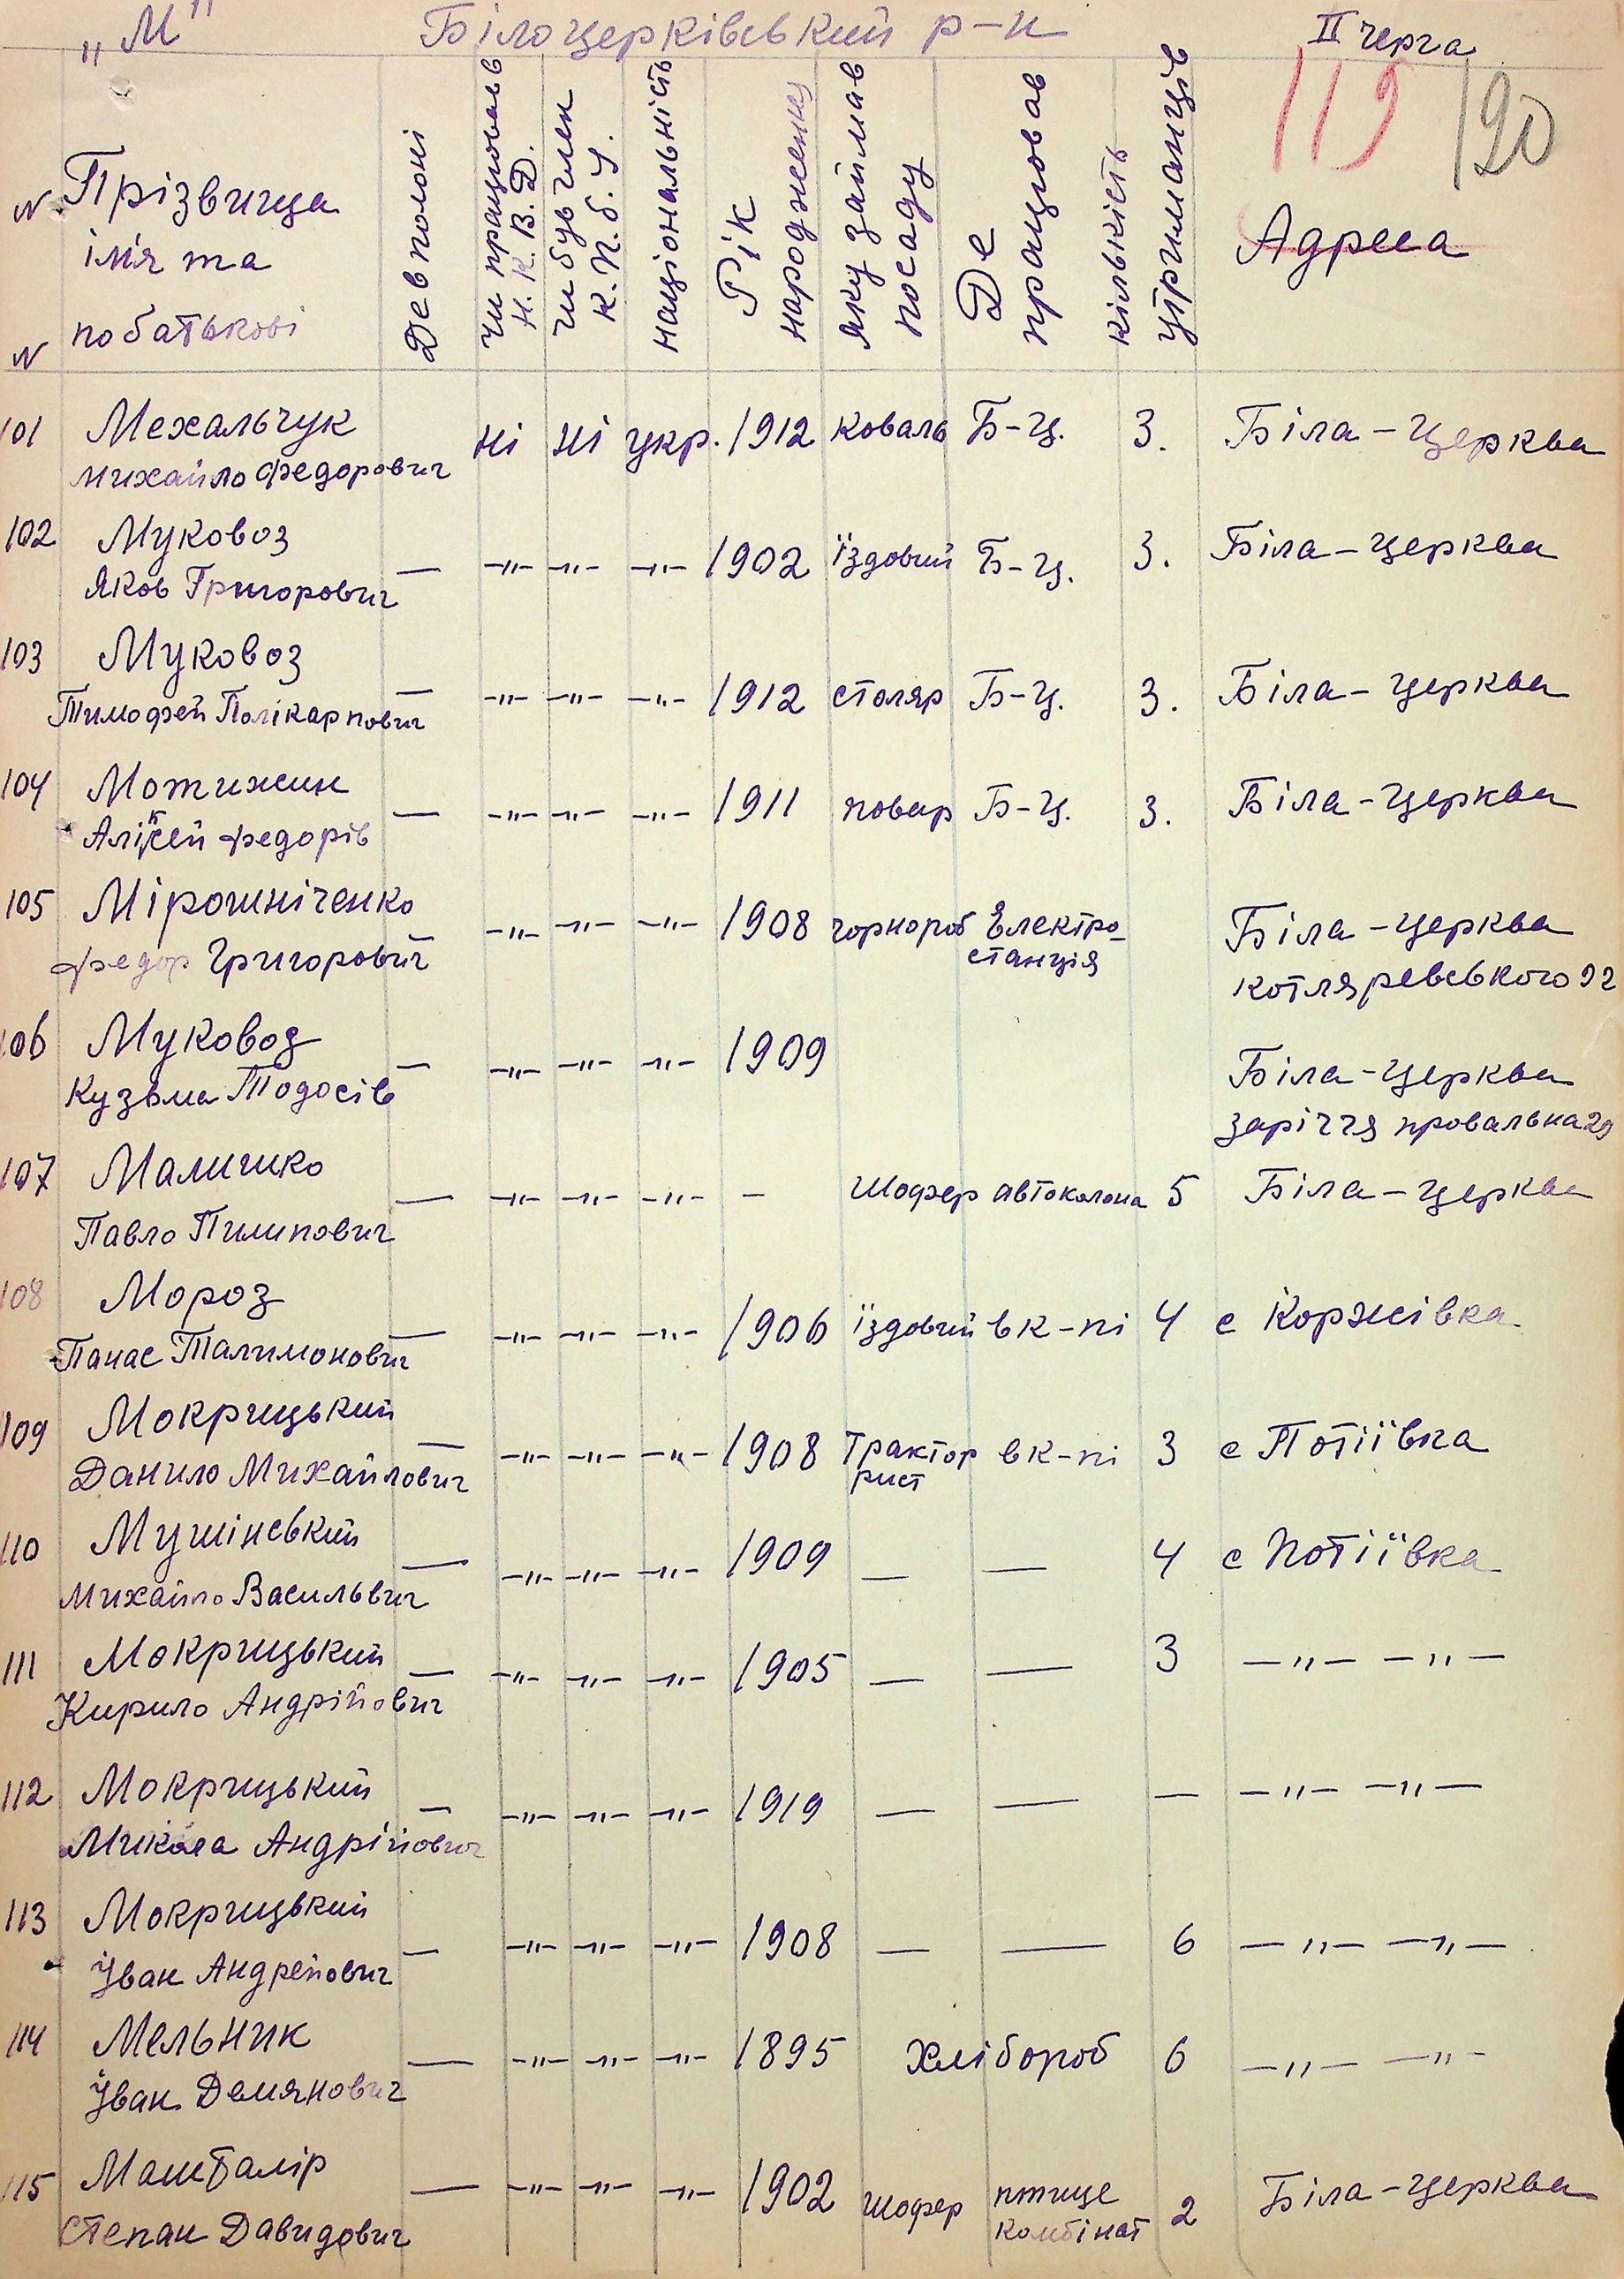 „М" Білоцерківський р-н ІІ черга
119 120
№ Прізвища
ім'я та
побатькові
№
Де в полоні
чи працював в
Н.К.В.Д.
чи був член
К.П.б.У.
національність
Рік
народження
яку займав
посаду
Де
працював
кількість
утриманців
Адреса
101 Мехальчук
Михайло Федорович ні ні укр. 1912 коваль Б-Ц. 3. Біла-Церква
102 Муковоз
Яков Григорович — -"- -"- -"- 1902 їздовий Б-Ц. 3. Біла-Церква
103 Муковоз
Тимофей Полікарпович — -"- -"- -"- 1912 столяр Б-Ц. 3. Біла-Церква
104 Мотижин
Алікей Федорів — -"- -"- -"- 1911 повар Б-Ц. 3. Біла-Церква
105 Мірошніченко
Федор Григорович -"- -"- -"- 1908 чорнороб Електро-
станція Біла-Церква
Котляревського 92
106 Муковоз
Кузьма Тодосів — -"- -"- -"- 1909 Біла-Церква
заріччя провальна 29
107 Маличко
Павло Пилипович — -"- -"- -"- - Шофер автоколона 5 Біла-Церква
108 Мороз
Панас Талимонович — -"- -"- -"- 1906 їздовий в к-пі 4 с Коржівка
109 Мокрицький
Данило Михайлович — -"- -"- -"- 1908 Трактор
рист в к-пі 3 с Потіївка
110 Мушінський
Михайло Васильвич — -"- -"- -"- 1909 — — 4 с Потіївка
111 Мокрицький
Кирило Андрійович — -"- -"- -"- 1905 — — 3 -"- -"-
112 Мокрицький
Микола Андрійович — -"- -"- -"- 1919 — — — -"- -"-
113 Мокрицький
Іван Андрейович — -"- -"- -"- 1908 — — 6 -"- -"-
114 Мельник
Іван Демянович — -"- -"- -"- 1895 Хлібороб 6 -"- -"-
115 Машталір
Степан Давидович — -"- -"- -"- 1902 шофер птице
комбінат 2 Біла-Церква